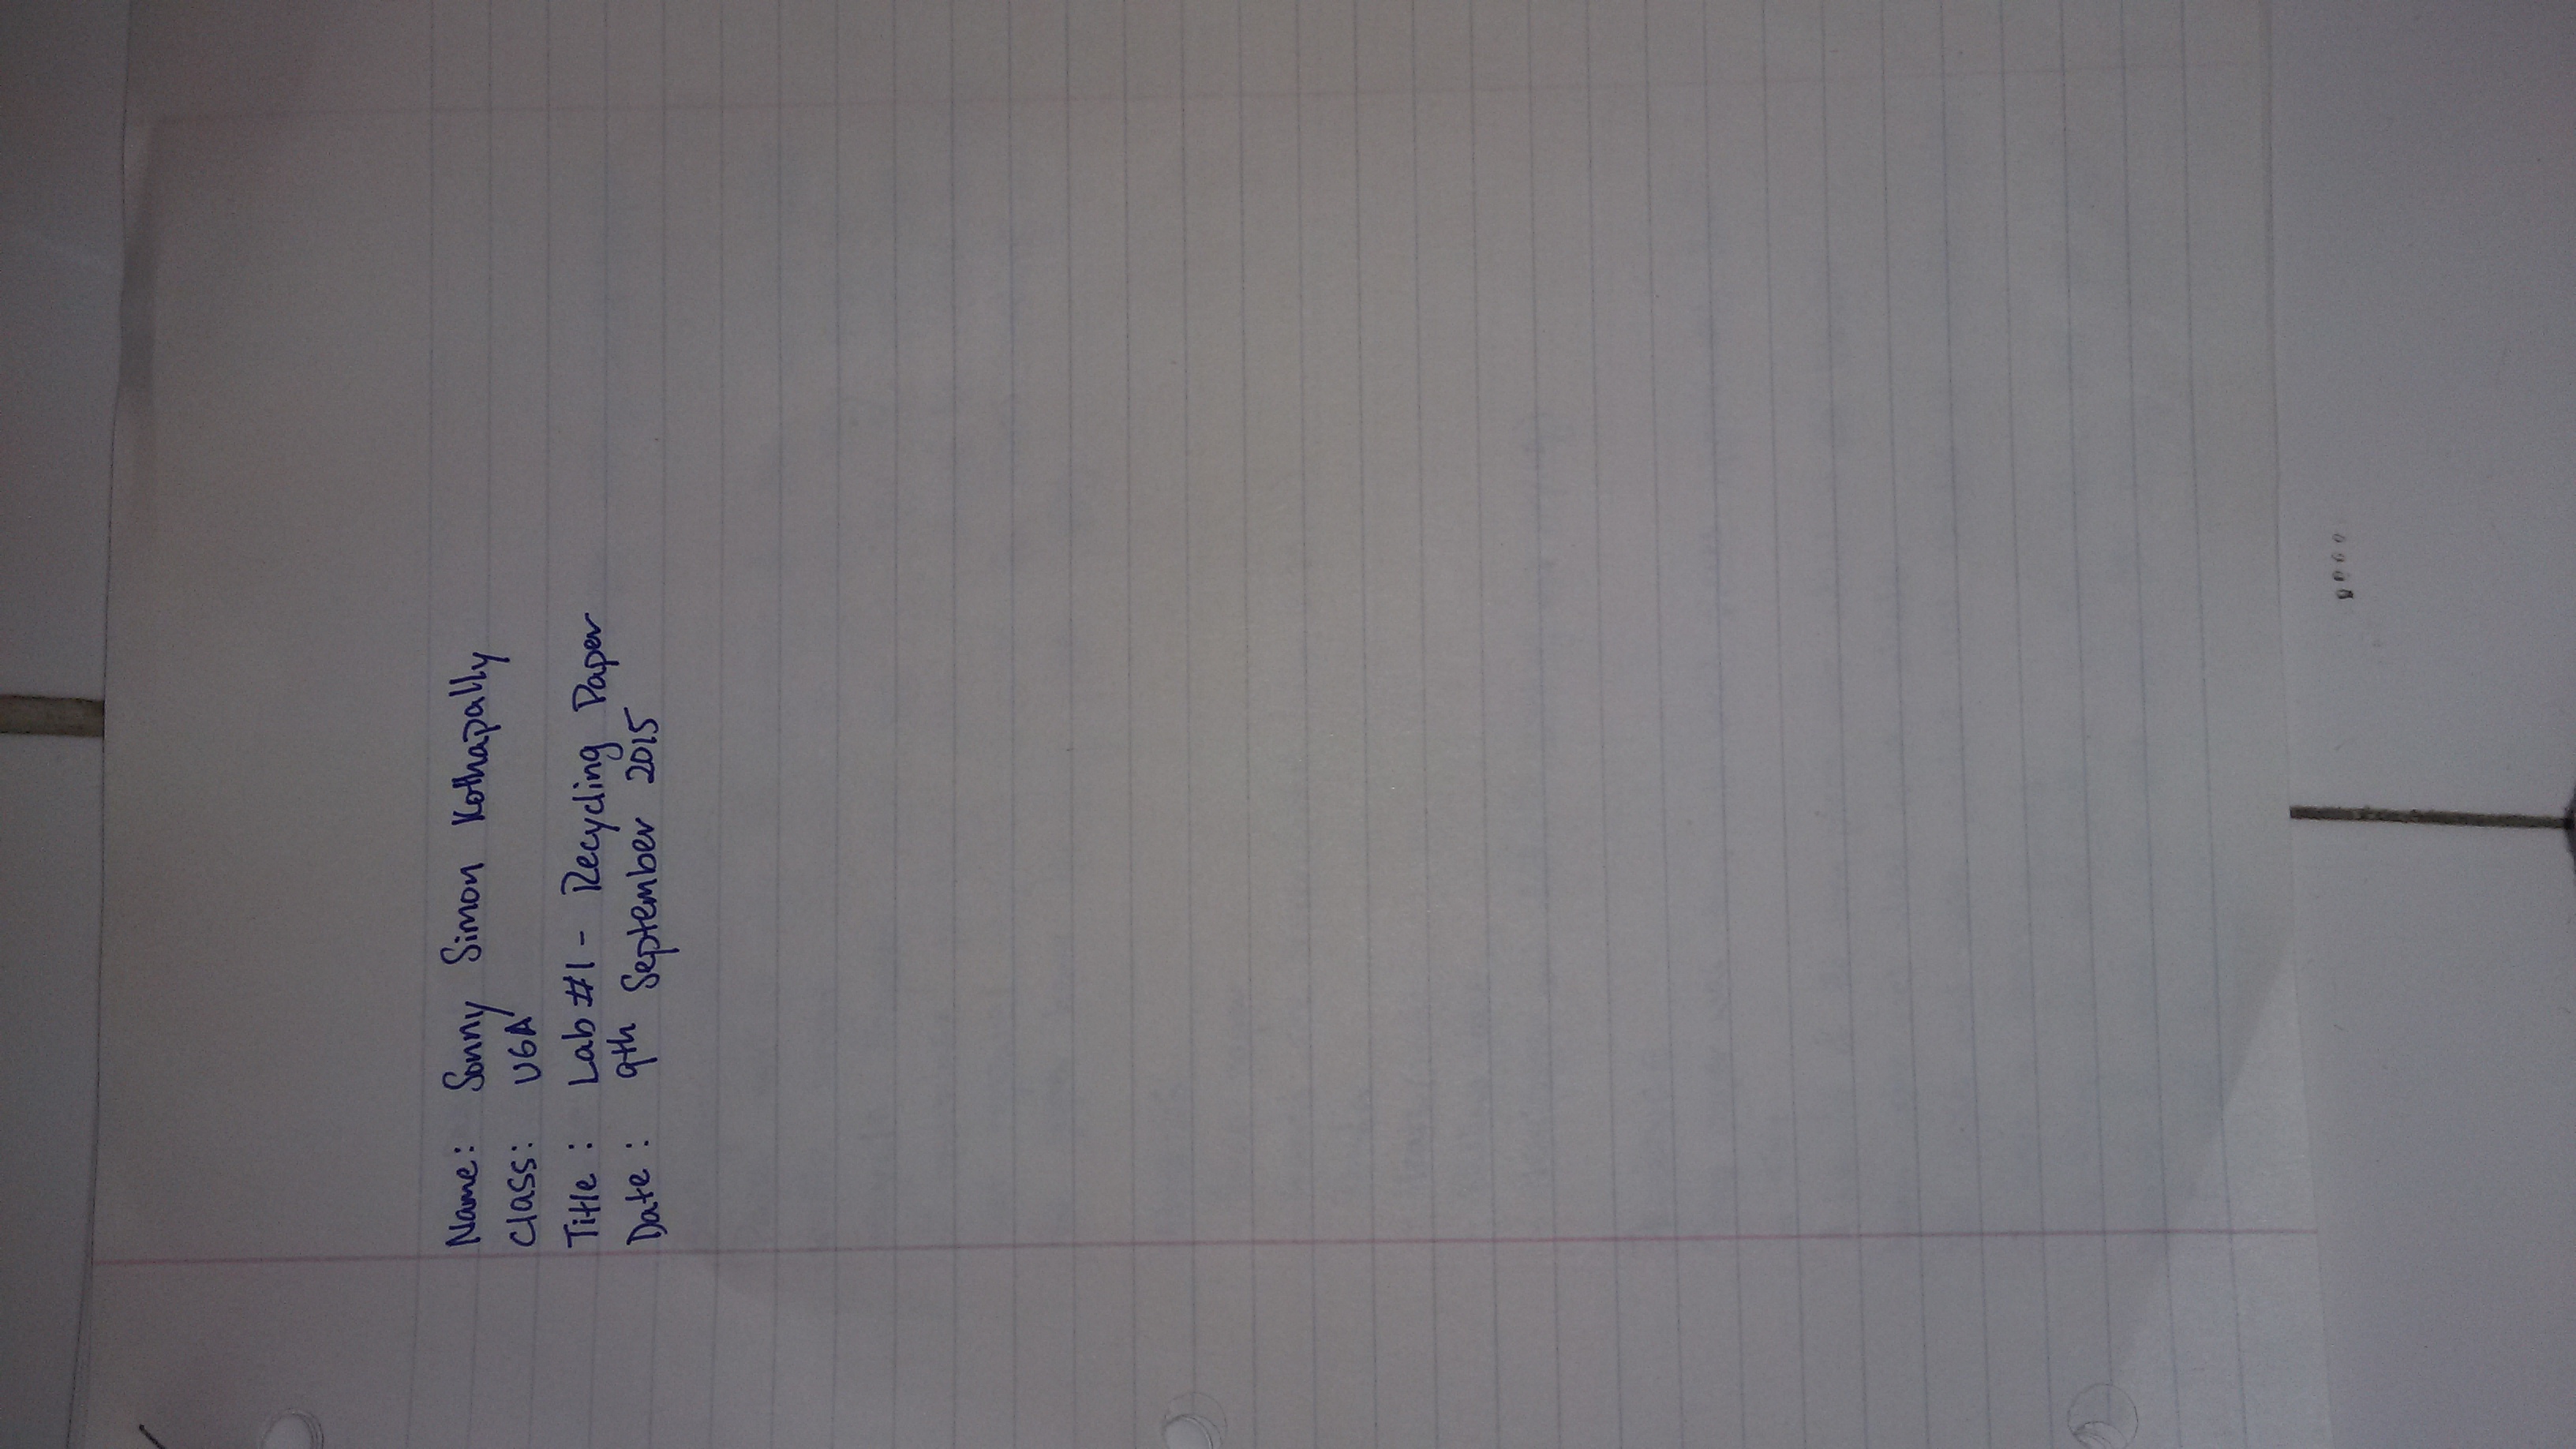 Name: Sonny Simon Kothapally
Class: U6A
Title: Lab #1 - Recycling Paper
Date: 9th September 2015